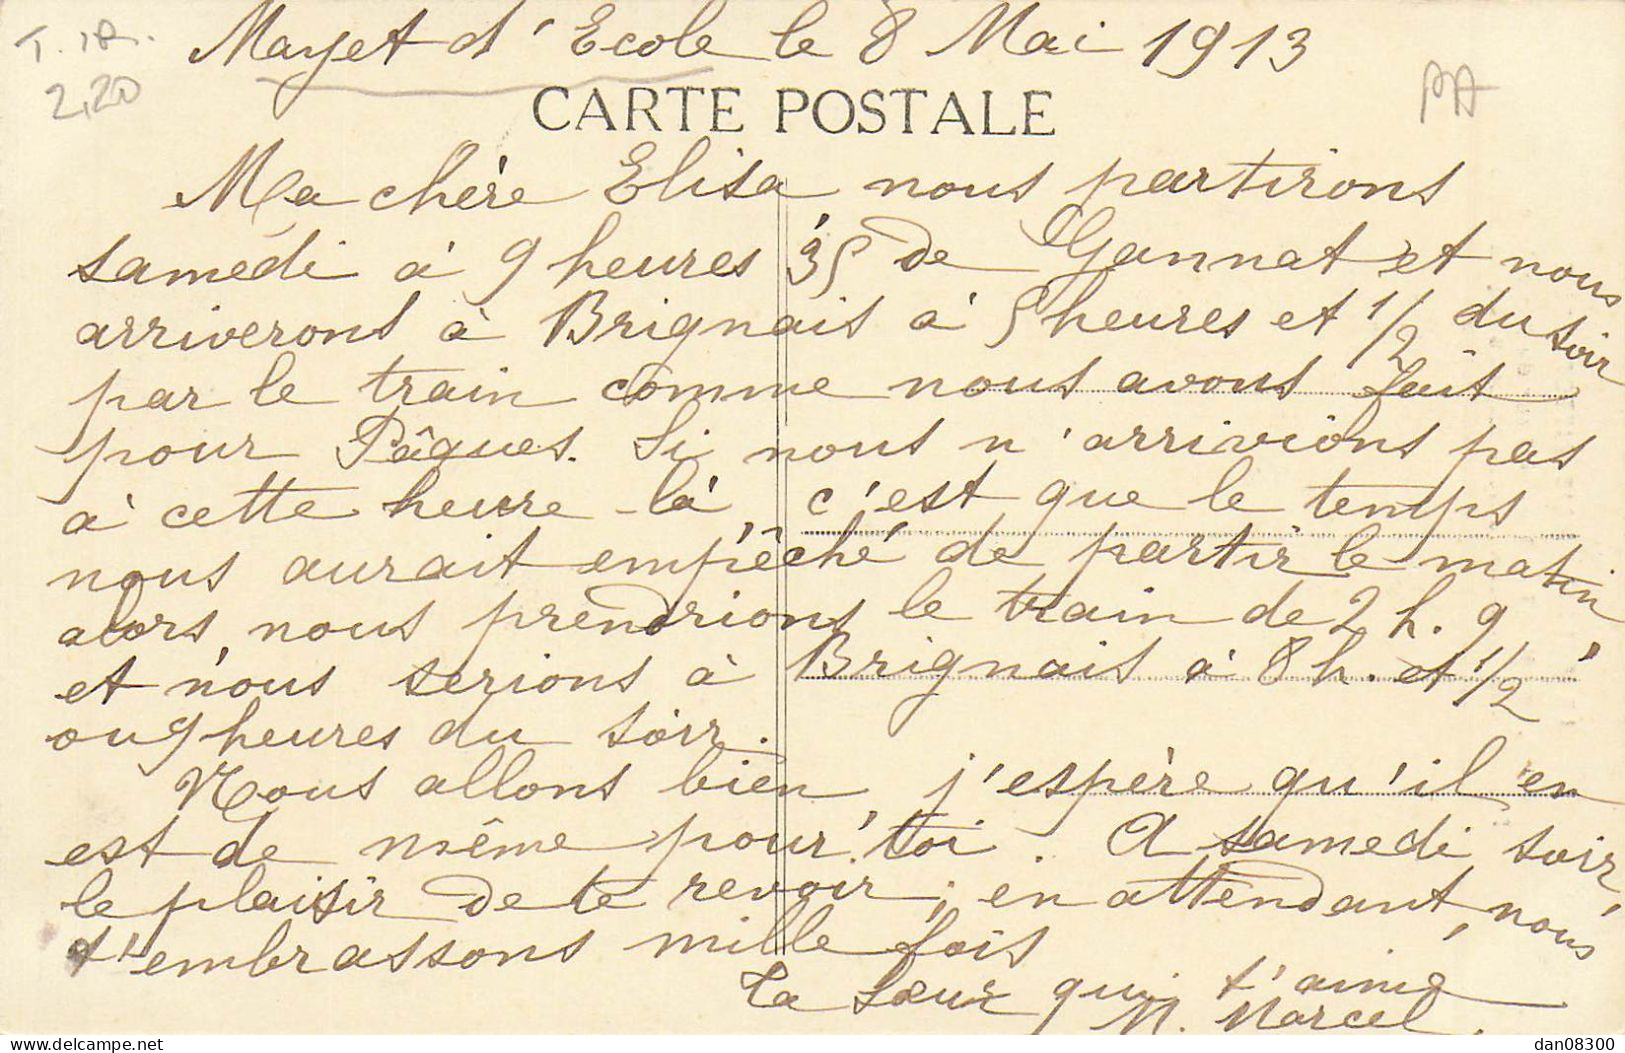 T. 1A.
2,20
Mayet d'Ecole le 8 Mai 1913
CARTE POSTALE
Ma chère Elisa nous partirons
samedi à 9 heures 35 de Gannat et nous
arriverons à Brignais à 5 heures et 1/2 du soir
par le train comme nous avons fait
pour Pâques. Si nous n'arrivions pas
à cette heure-là, c'est que le temps
nous aurait empêché de partir le matin
alors, nous prendrions le train de 2 h. 9
et nous serions à Brignais à 8 h. et 1/2
ou 9 heures du soir.
Nous allons bien, j'espère qu'il en
est de même pour toi. A samedi soir,
le plaisir de te revoir; en attendant, nous
t'embrassons mille fois
Ta Sœur qui t'aime
M. Marcel.
delcampe.net
dan08300